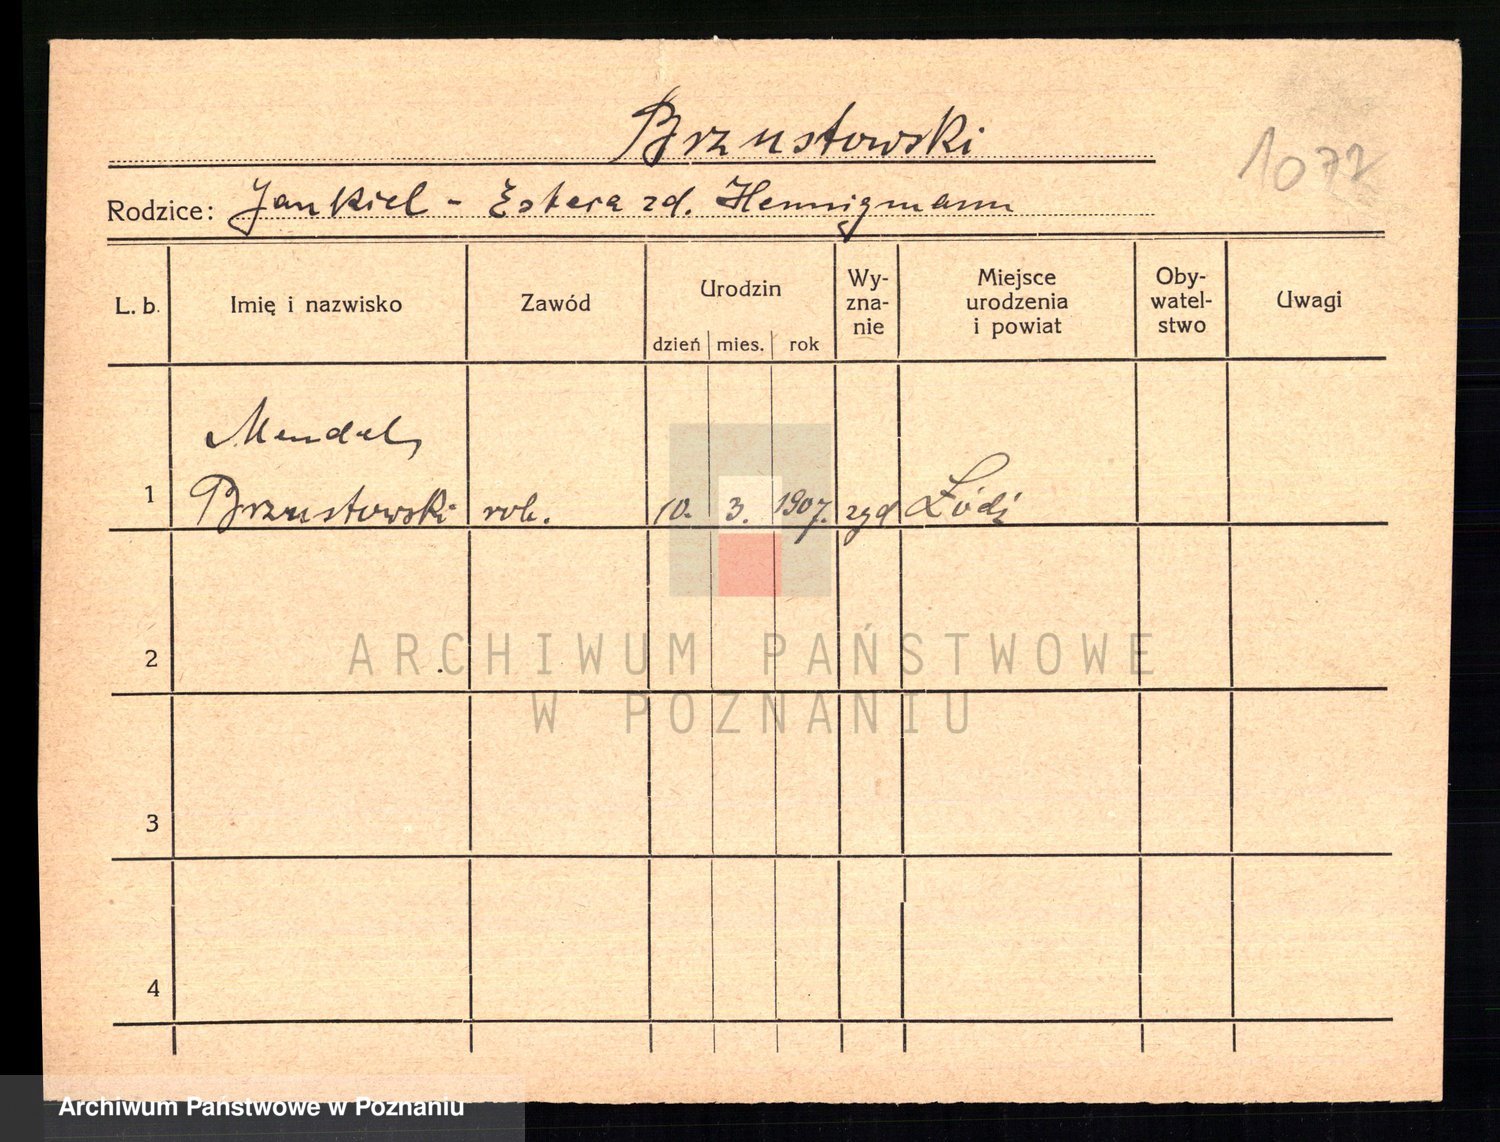 Brzustowski
1072
Rodzice: Jankiel - Estera zd. Hennigmann
L. b. Imię i nazwisko Zawód Urodzin dzień mies. rok Wy-zna-nie Miejsce urodzenia i powiat Oby-watel-stwo Uwagi
Mendel,
1 Brzustowski rob. 10. 3. 1907. żyd Łódź
2
ARCHIWUM PAŃSTWOWE
W POZNANIU
3
4
Archiwum Państwowe w Poznaniu